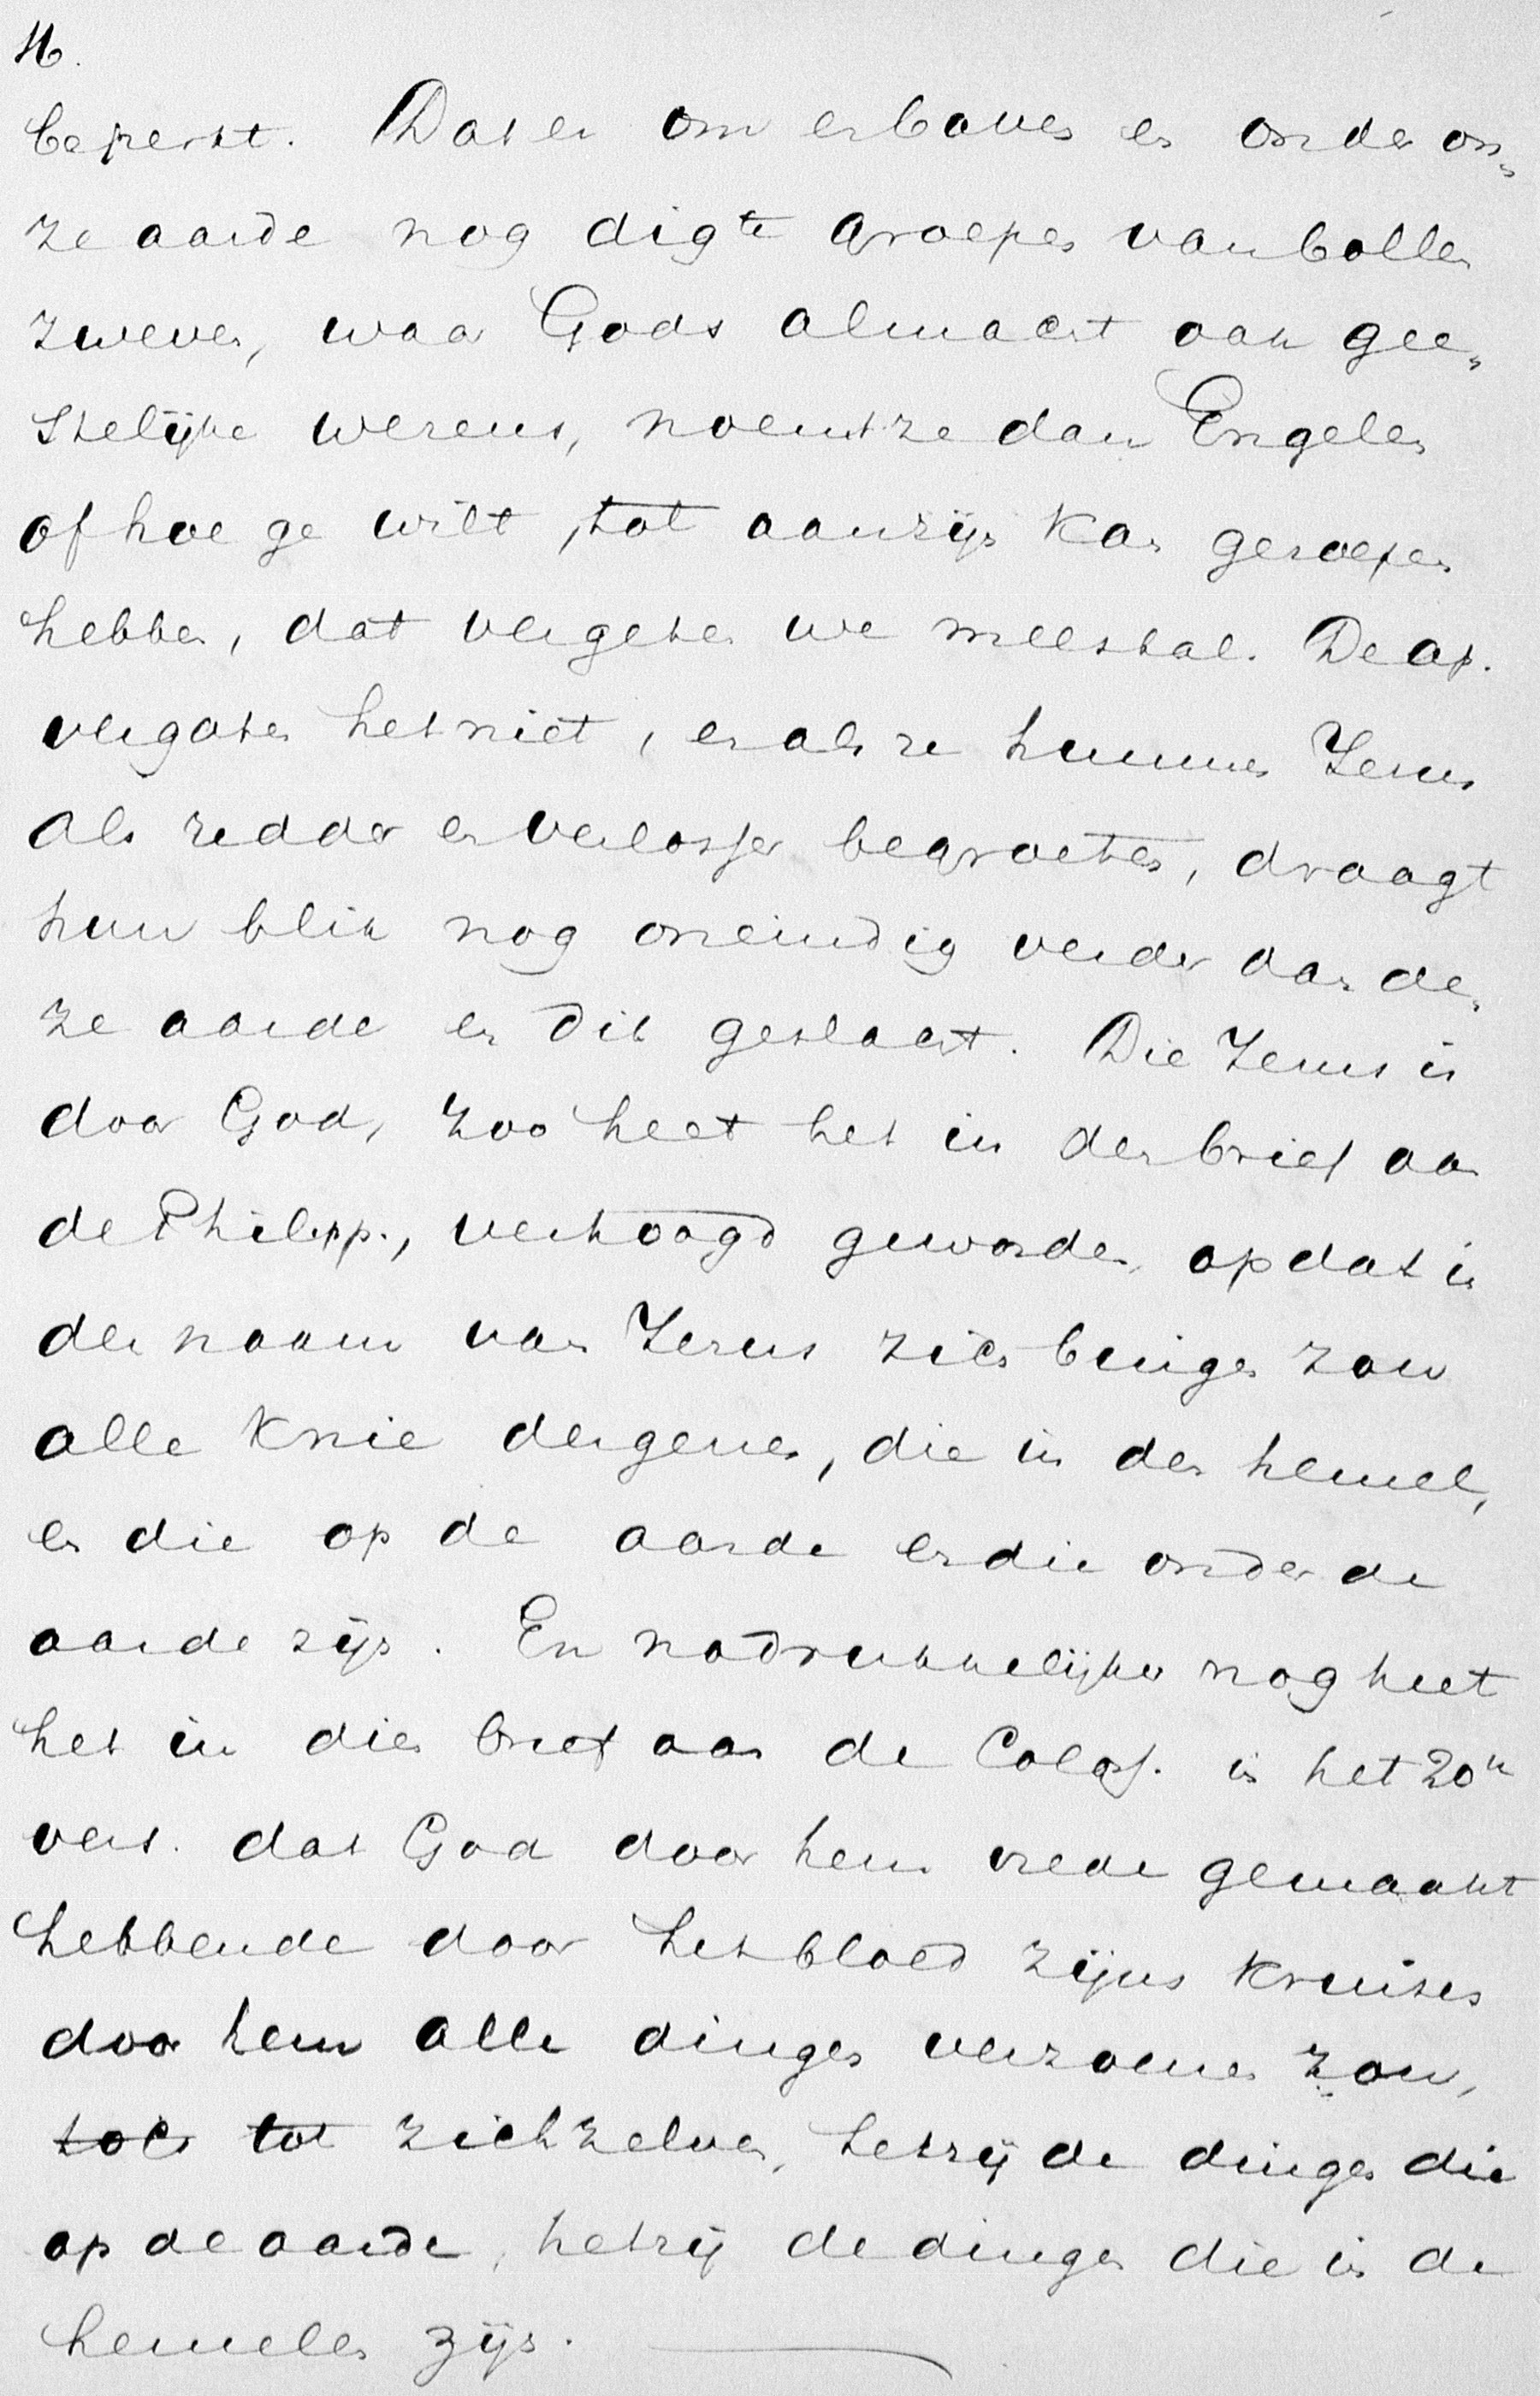 16.
beperkt. Dat er om en boven en onder on„
ze aarde nog digte groepen van bollen
zweven, waar Gods almacht ook gee„
stelijke wezens, noemt ze dan Engelen
of hoe ge wilt, tot aanzijn kan geroepen
hebben, dat vergeten we meestal. De ap.
vergaten het niet, en als ze hunnen Jezus
als redder en verlosser begroeten, draagt
hun blik nog oneindig verder dan de„
ze aarde en dit geslacht. Die Jezus is
door God, zoo heet het in den brief aan
de Philipp., verhoogd geworden, opdat in
den naam van Jezus zich buigen zou
alle knie dergenen, die in den hemel,
en die op de aarde en die onder de
aarde zijn. En nadrukkelijker nog heet
het in dien brief aan de Coloss. in het 20e
vers. dat God door hem vrede gemaakt
hebbende door het bloed zijns kruises
door hem alle dingen verzoenen zou,
tot zichzelven, hetzij de dingen die
op de aarde, hetzij de dingen die in de
hemelen zijn.